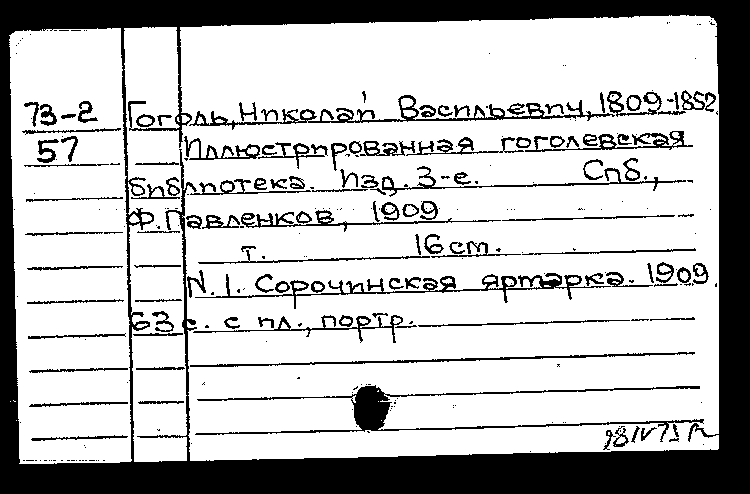 73-2 Гоголь, Николай Васильевич, 1809-1852
57 Иллюстрированная гоголевская
библиотека. Изд. 3-е. Спб.,
Ф. Павленков, 1909.
т. 16 cm.
N. 1. Сорочинская ярмарка. 1909.
63 с. с ил., портр.